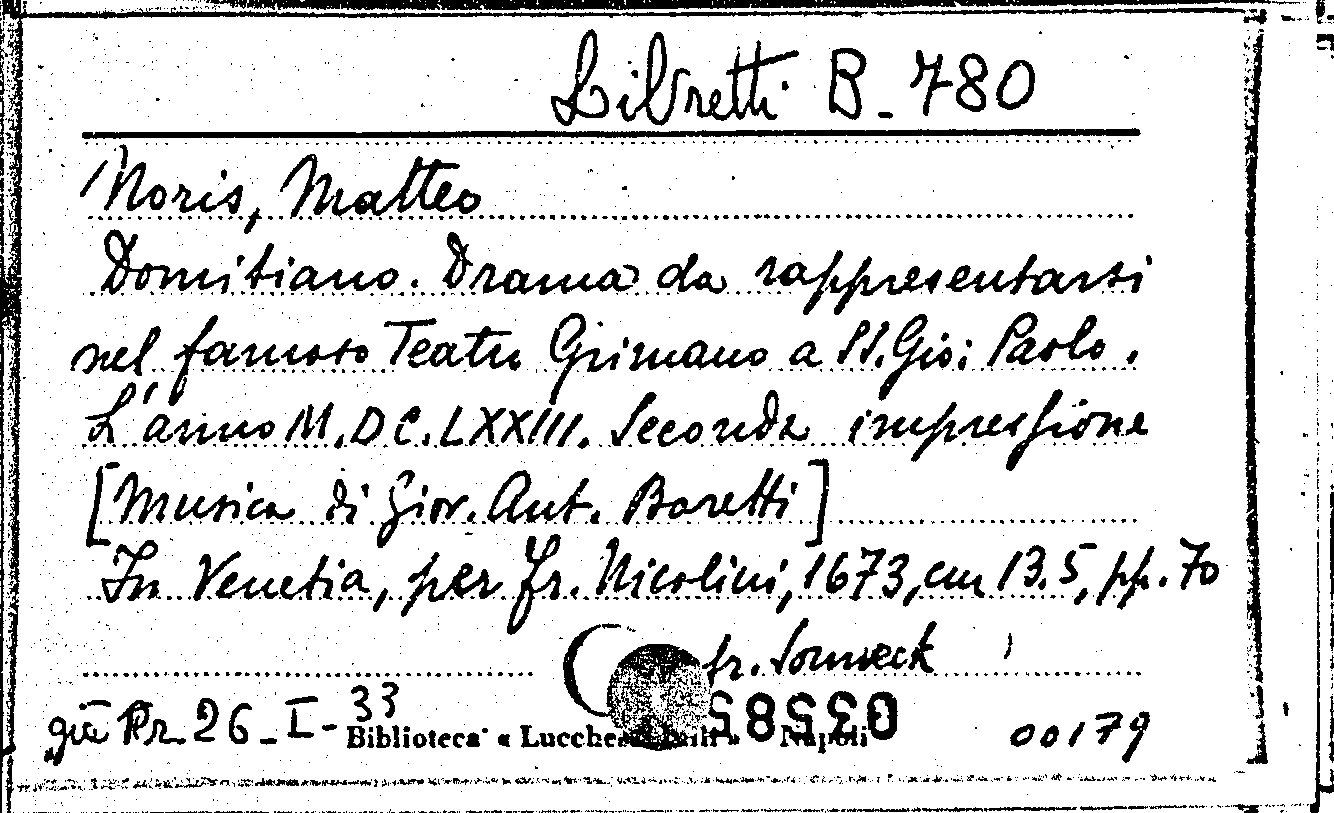 Libretti B. 780
Noris, Matteo
Domitiano. Drama da rappresentarsi
nel famoso Teatro Grimano a SS. Gio: Paolo.
L'anno M.DC.LXXIII. Seconda impressione
[Musica di Giov. Ant. Boretti]
In Venetia, per Fr. Nicolini, 1673, cm 13.5, pp. 70
Sonneck
già Pr. 26-I-33
Biblioteca « Lucchesi Palli » Napoli
03585
00179